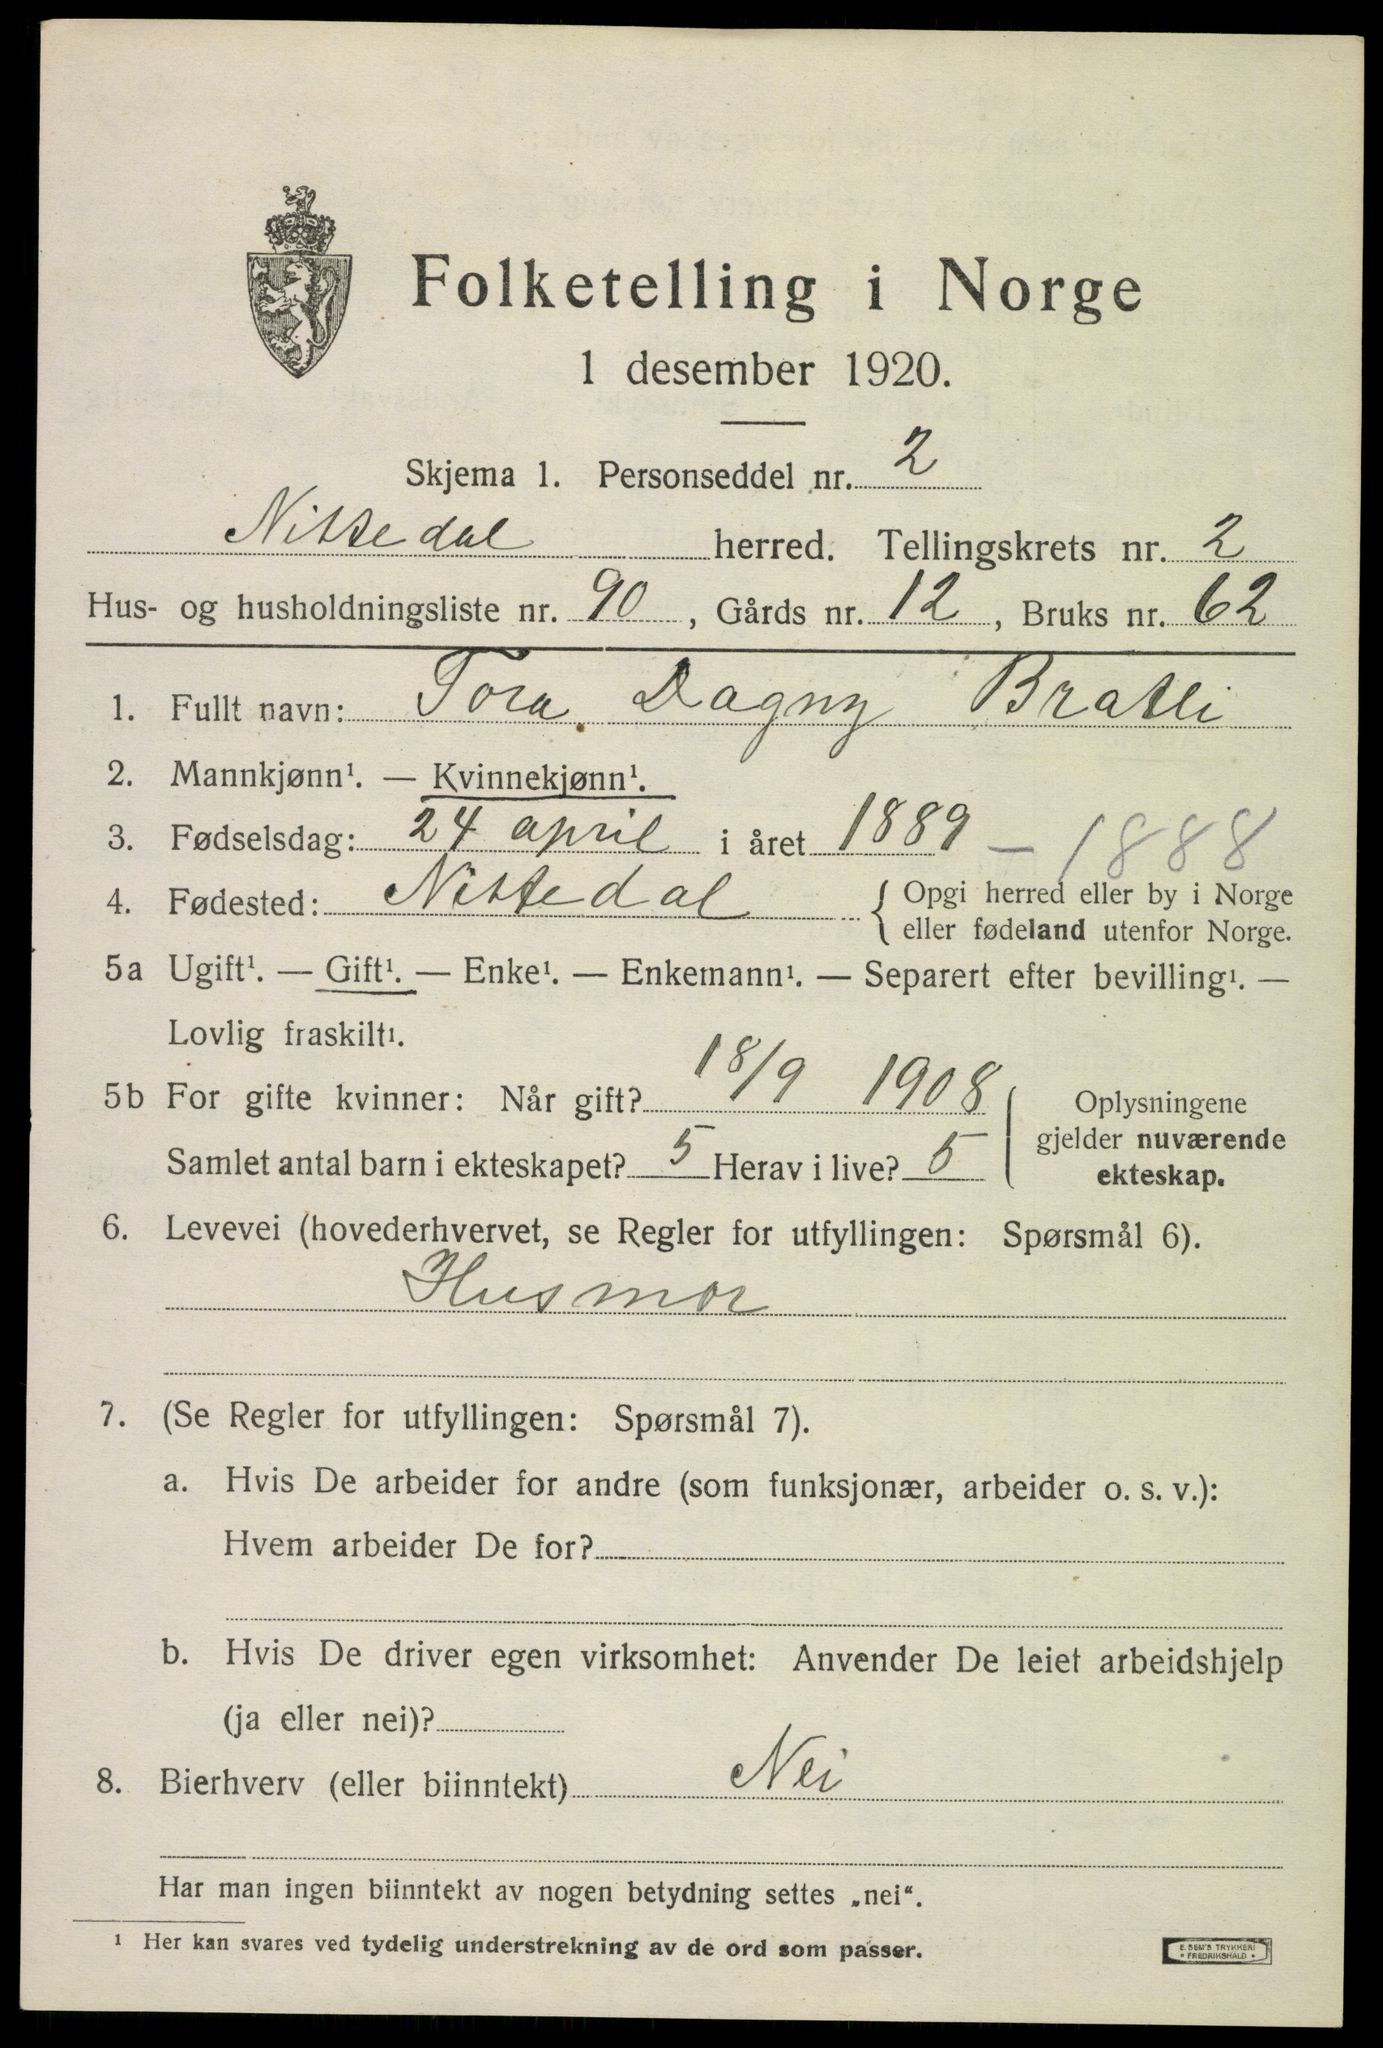 Folketelling i Norge
1 desember 1920.
Skjema 1. Personseddel nr. 2
Nittedal herred. Tellingskrets nr. 2
Hus- og husholdningsliste nr. 90, Gårds nr. 12, Bruks nr. 62
1. Fullt navn: Tora Dagny Bratli
2. Mannkjønn¹. — Kvinnekjønn¹.
3. Fødselsdag: 24 april i året 1889 - 1888
4. Fødested: Nittedal { Opgi herred eller by i Norge
eller fødeland utenfor Norge.
5a Ugift¹. — Gift¹. — Enke¹. — Enkemann¹. — Separert efter bevilling¹. —
Lovlig fraskilt¹.
5b For gifte kvinner: Når gift? 18/9 1908
Samlet antal barn i ekteskapet? 5 Herav i live? 5
Oplysningene
gjelder nuværende
ekteskap.
6. Levevei (hovederhvervet, se Regler for utfyllingen: Spørsmål 6).
Husmor
7. (Se Regler for utfyllingen: Spørsmål 7).
a. Hvis De arbeider for andre (som funksjonær, arbeider o. s. v.):
Hvem arbeider De for?
b. Hvis De driver egen virksomhet: Anvender De leiet arbeidshjelp
(ja eller nei)?
8. Bierhverv (eller biinntekt) Nei
Har man ingen biinntekt av nogen betydning settes „nei“.
¹ Her kan svares ved tydelig understrekning av de ord som passer.
E. SEM'S TRYKKERI
• FREDRIKSHALD •